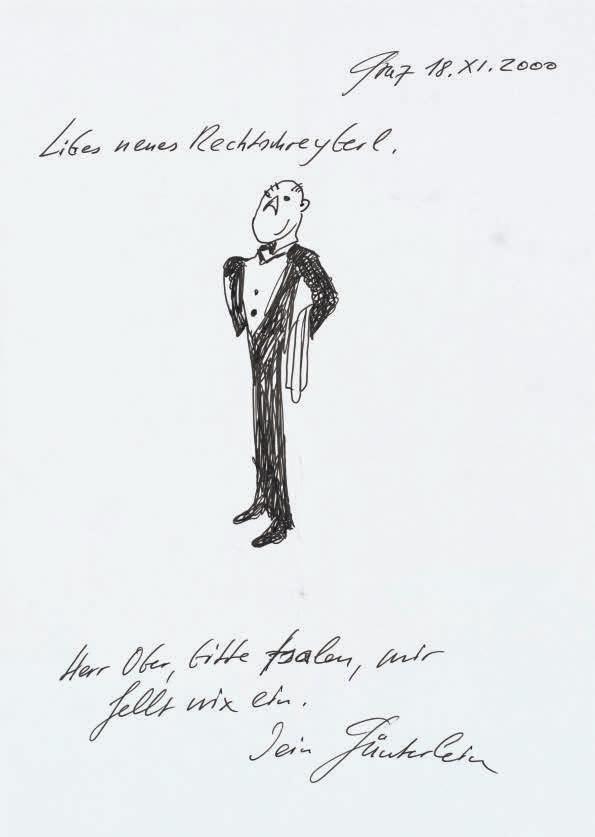 Graz 18.XI.2000
Libes neues Rechtschreyberl.
Herr Ober, bitte tsalen, mir
fellt nix ein.
Dein Günterlein